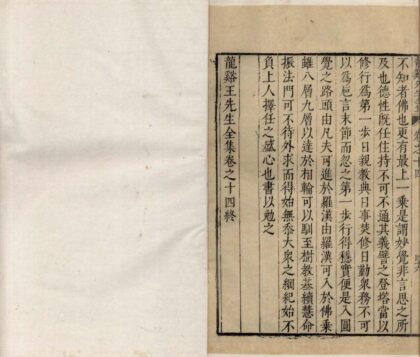 不知者佛也更有最上一乘是謂妙覺非言思之所
及也德性既任住持不可不通其義譬之登塔當以
修行為第一步日親教典日事焚修日勤眾務不可
以為巵言末節而忽之第一步行得穩實便是入圓
覺之路頭由凡夫可進於羅漢由羅漢可入於佛乘
雖八層九層以達於相輪可以馴至樹教基續慧命
振法門可不待外求而得始無忝大眾之綱紀始不
負上人擇任之盛心也書以勉之
龍谿王先生全集卷之十四終